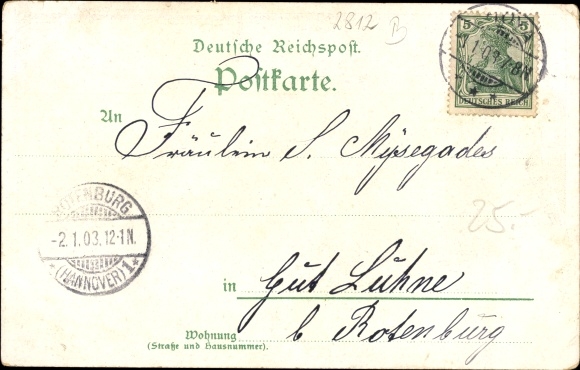 2812 B
5 5
1.03.7-8N
DEUTSCHES REICH
Deutsche Reichspost.
Postkarte.
An
Fräulein S. Mÿsegades
ROTENBURG
-2.1.03.12-1N.
(HANNOVER) 1*
25.-
in Gut Lühne
b Rotenburg
Wohnung
(Straße und Hausnummer).